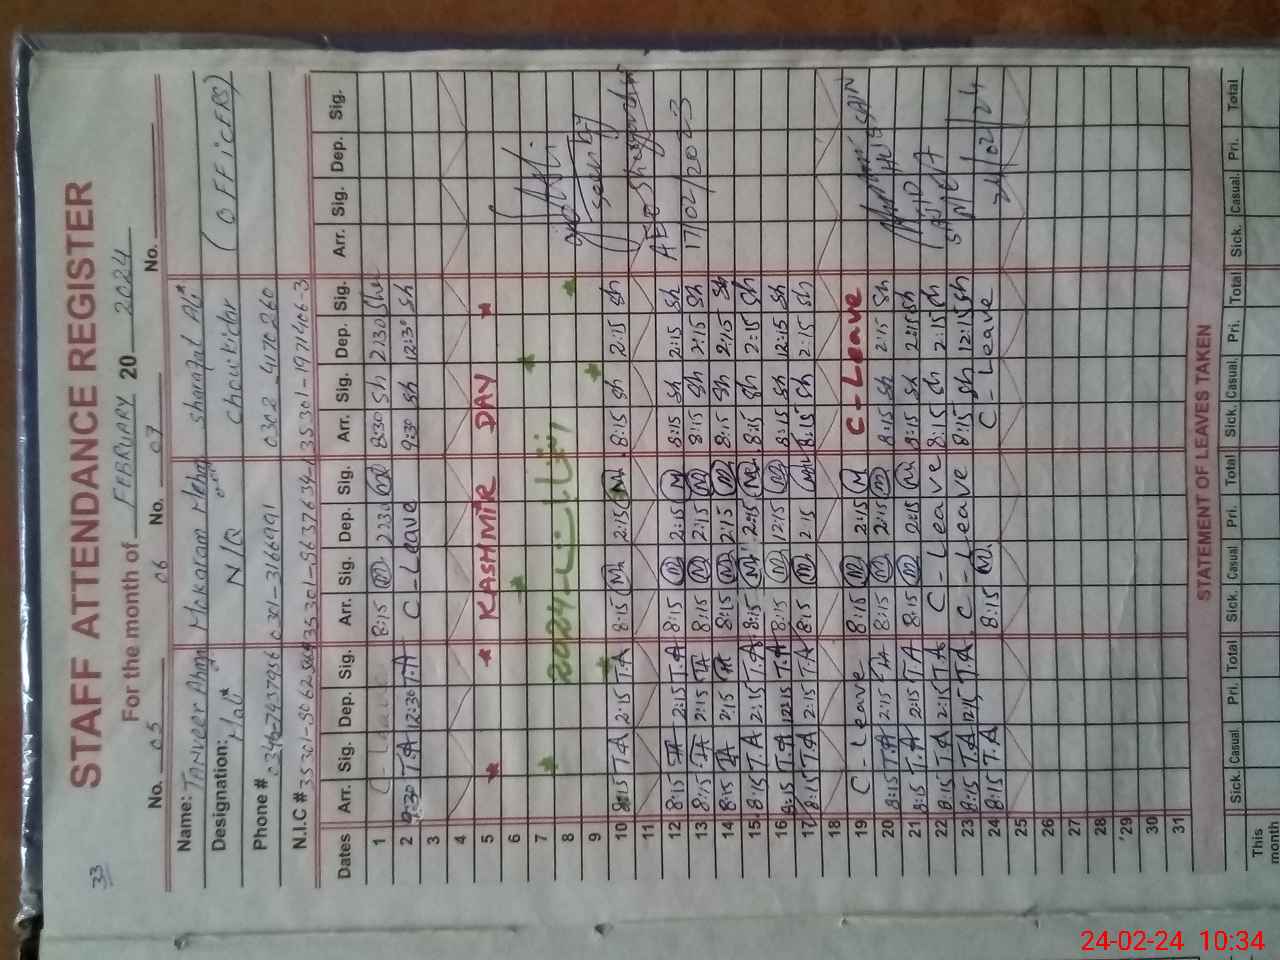 33
STAFF ATTENDANCE REGISTER
For the month of FEBRUARY 20 2024
No. 05 No. 06 No. 07 No.
Name: TANVEER Mokaram sharafat Ali (OFFICERS)
Designation: Mali N/Q chowkidar
Phone # 0301-3166991 0302 4170260
N.I.C #
Dates Arr. Sig. Dep. Sig. Arr. Sig. Dep. Sig. Arr. Sig. Dep. Sig. Arr. Sig. Dep. Sig.
1 C-Leave 8:15 M 2230 M 8:30 Sh 2:30
2 9:30 T.A 12:30 T.A C-Leave 9:30 Sh 12:30 Sh
3
4
5 KASHMIR DAY
6
7
8 2024
9
10 8:15 T.A 2:15 T.A 8:15 M 2:15 M 8:15 Sh 2:15 Sh
11
12 8:15 TA 2:15 T.A 8:15 M 2:15 M 8:15 Sh 2:15 Sh
13 8:15 TA 2:15 TA 8:15 M 2:15 M 8:15 Sh 2:15 Sh 17/02/2023
14 8:15 TA 2:15 TA 8:15 M 2:15 M 8:15 Sh 2:15 Sh
15 8:15 T.A 2:15 T.A 8:15 M 2:15 M 8:15 Sh 2:15 Sh
16 8:15 T.A 12:15 T.A 8:15 M 12:15 M 8:15 Sh 12:15 Sh
17 8:15 T.A 2:15 T.A 8:15 M 2:15 M 8:15 Sh 2:15 Sh
18
19 C-Leave 8:15 M 2:15 M C-Leave
20 8:15 T.A 2:15 TA 8:15 M 2:15 M 8:15 Sh 2:15 Sh
21 8:15 T.A 2:15 T.A 8:15 M 2:15 M 8:15 Sh 2:15 Sh
22 8:15 T.A 2:15 T.A C-Leave 8:15 Sh 2:15 Sh
23 8:15 T.A 12:15 T.A C-Leave 8:15 Sh 12:15 Sh
24 8:15 T.A 8:15 M C-Leave 24/02/24
25
26
27
28
29
30
31
STATEMENT OF LEAVES TAKEN
Sick. Casual Pri. Total Sick. Casual Pri. Total Sick. Casual Pri. Total Sick. Casual. Pri. Total
This month
24-02-24 10:34